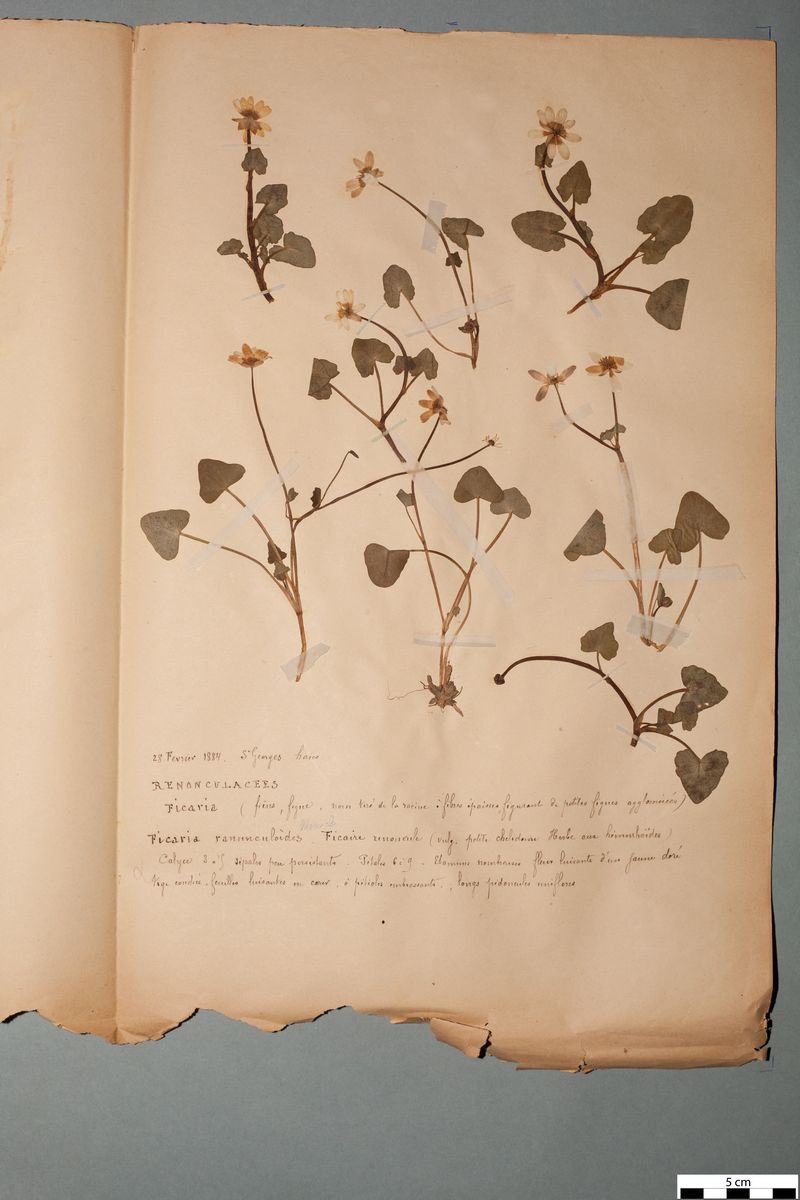 28 Fevrier 1884. St Georges haies
RENONCULACÉES
Ficaria (ficus, figue, nom tiré de la racine : fibres épaisses figurant de petites figues agglomérées)
Ficaria ranunculoïdes. Ficaire renoncule (vulg. petite chélidoine Herbe aux hémorrhoïdes)
Calyce 3 à 5 sépales peu persistants. Pétales 6 à 9. Etamines nombreuses fleur luisante d'un jaune doré
Tige couchée. feuilles luisantes en cœur, à pétioles embrassants, longs pédoncules uniflores
5 cm